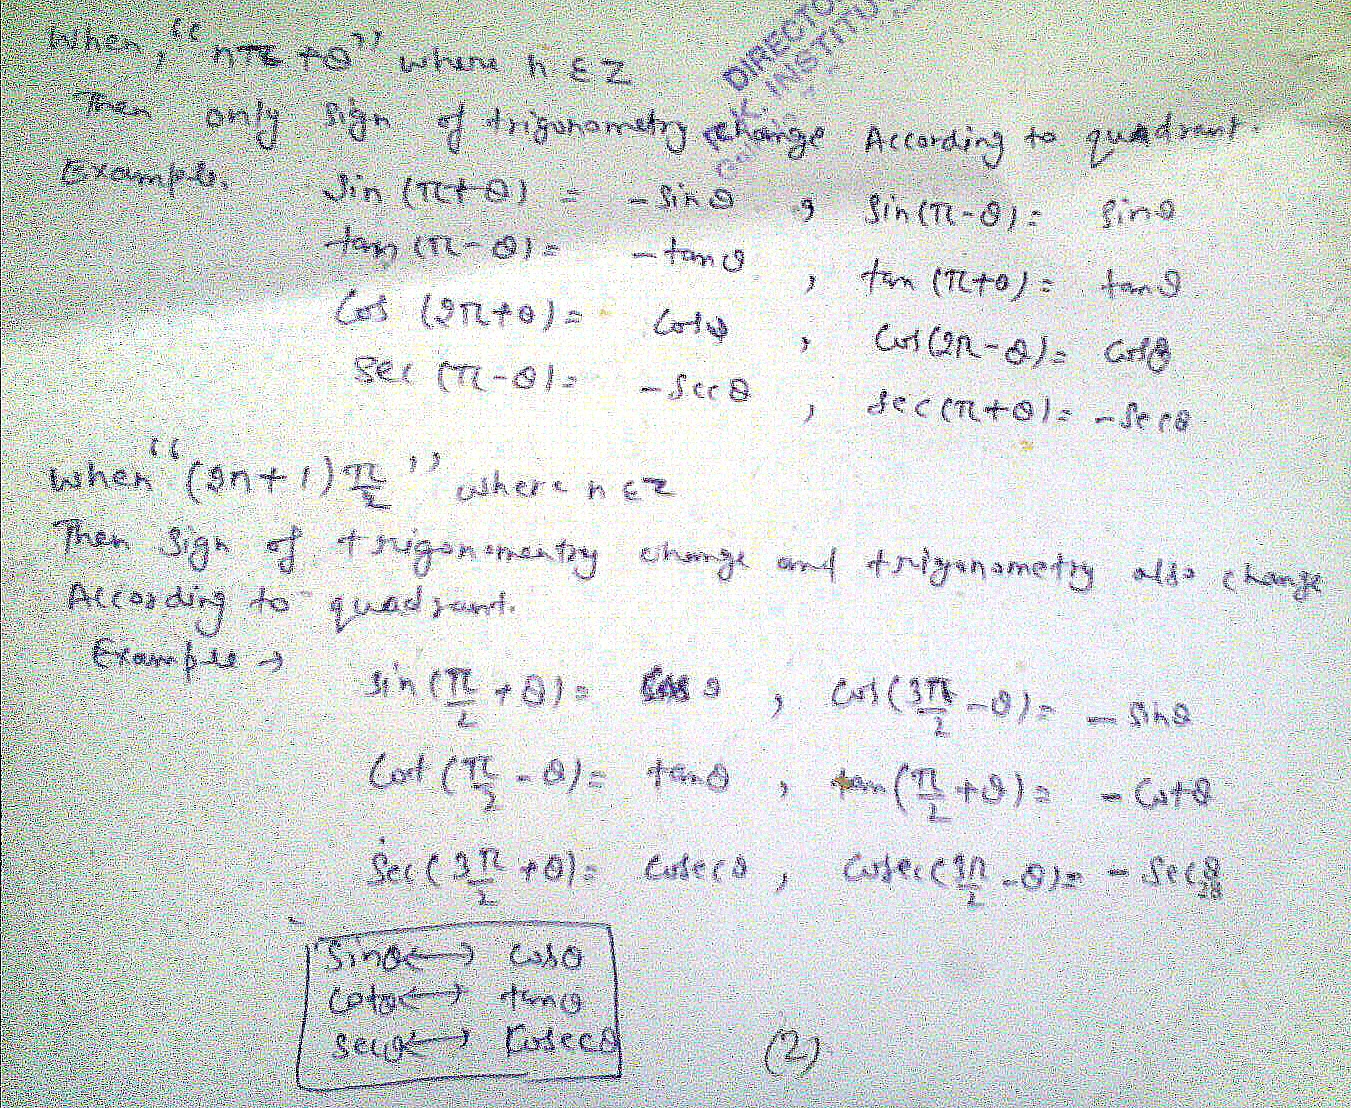 DIRECTO
K. INSTITU
When, "nπ+θ" where n ∈ Z
Then only sign of trigonometry change According to quadrant.
Example. Sin (π+θ) = - Sinθ , Sin(π-θ) = Sinθ
tan (π-θ) = - tanθ , tan (π+θ) = tanθ
Cos (2π+θ) = Cosθ , Cos(2π-θ) = Cosθ
Sec (π-θ) = - Secθ , Sec(π+θ) = - Secθ
When "(2n+1)π/2" where n ∈ Z
Then Sign of trigonomentry change and trigonometry also change
According to quadrant.
Example → Sin (π/2 + θ) = Cos θ , Cos (3π/2 - θ) = - Sinθ
Cot (π/2 - θ) = tanθ , tan (π/2 + θ) = - Cotθ
Sec (3π/2 + θ) = Cosecθ , Cosec(3π/2 - θ) = - Secθ
Sinθ ↔ Cosθ
Cotθ ↔ tanθ
Secθ ↔ Cosecθ
(2)